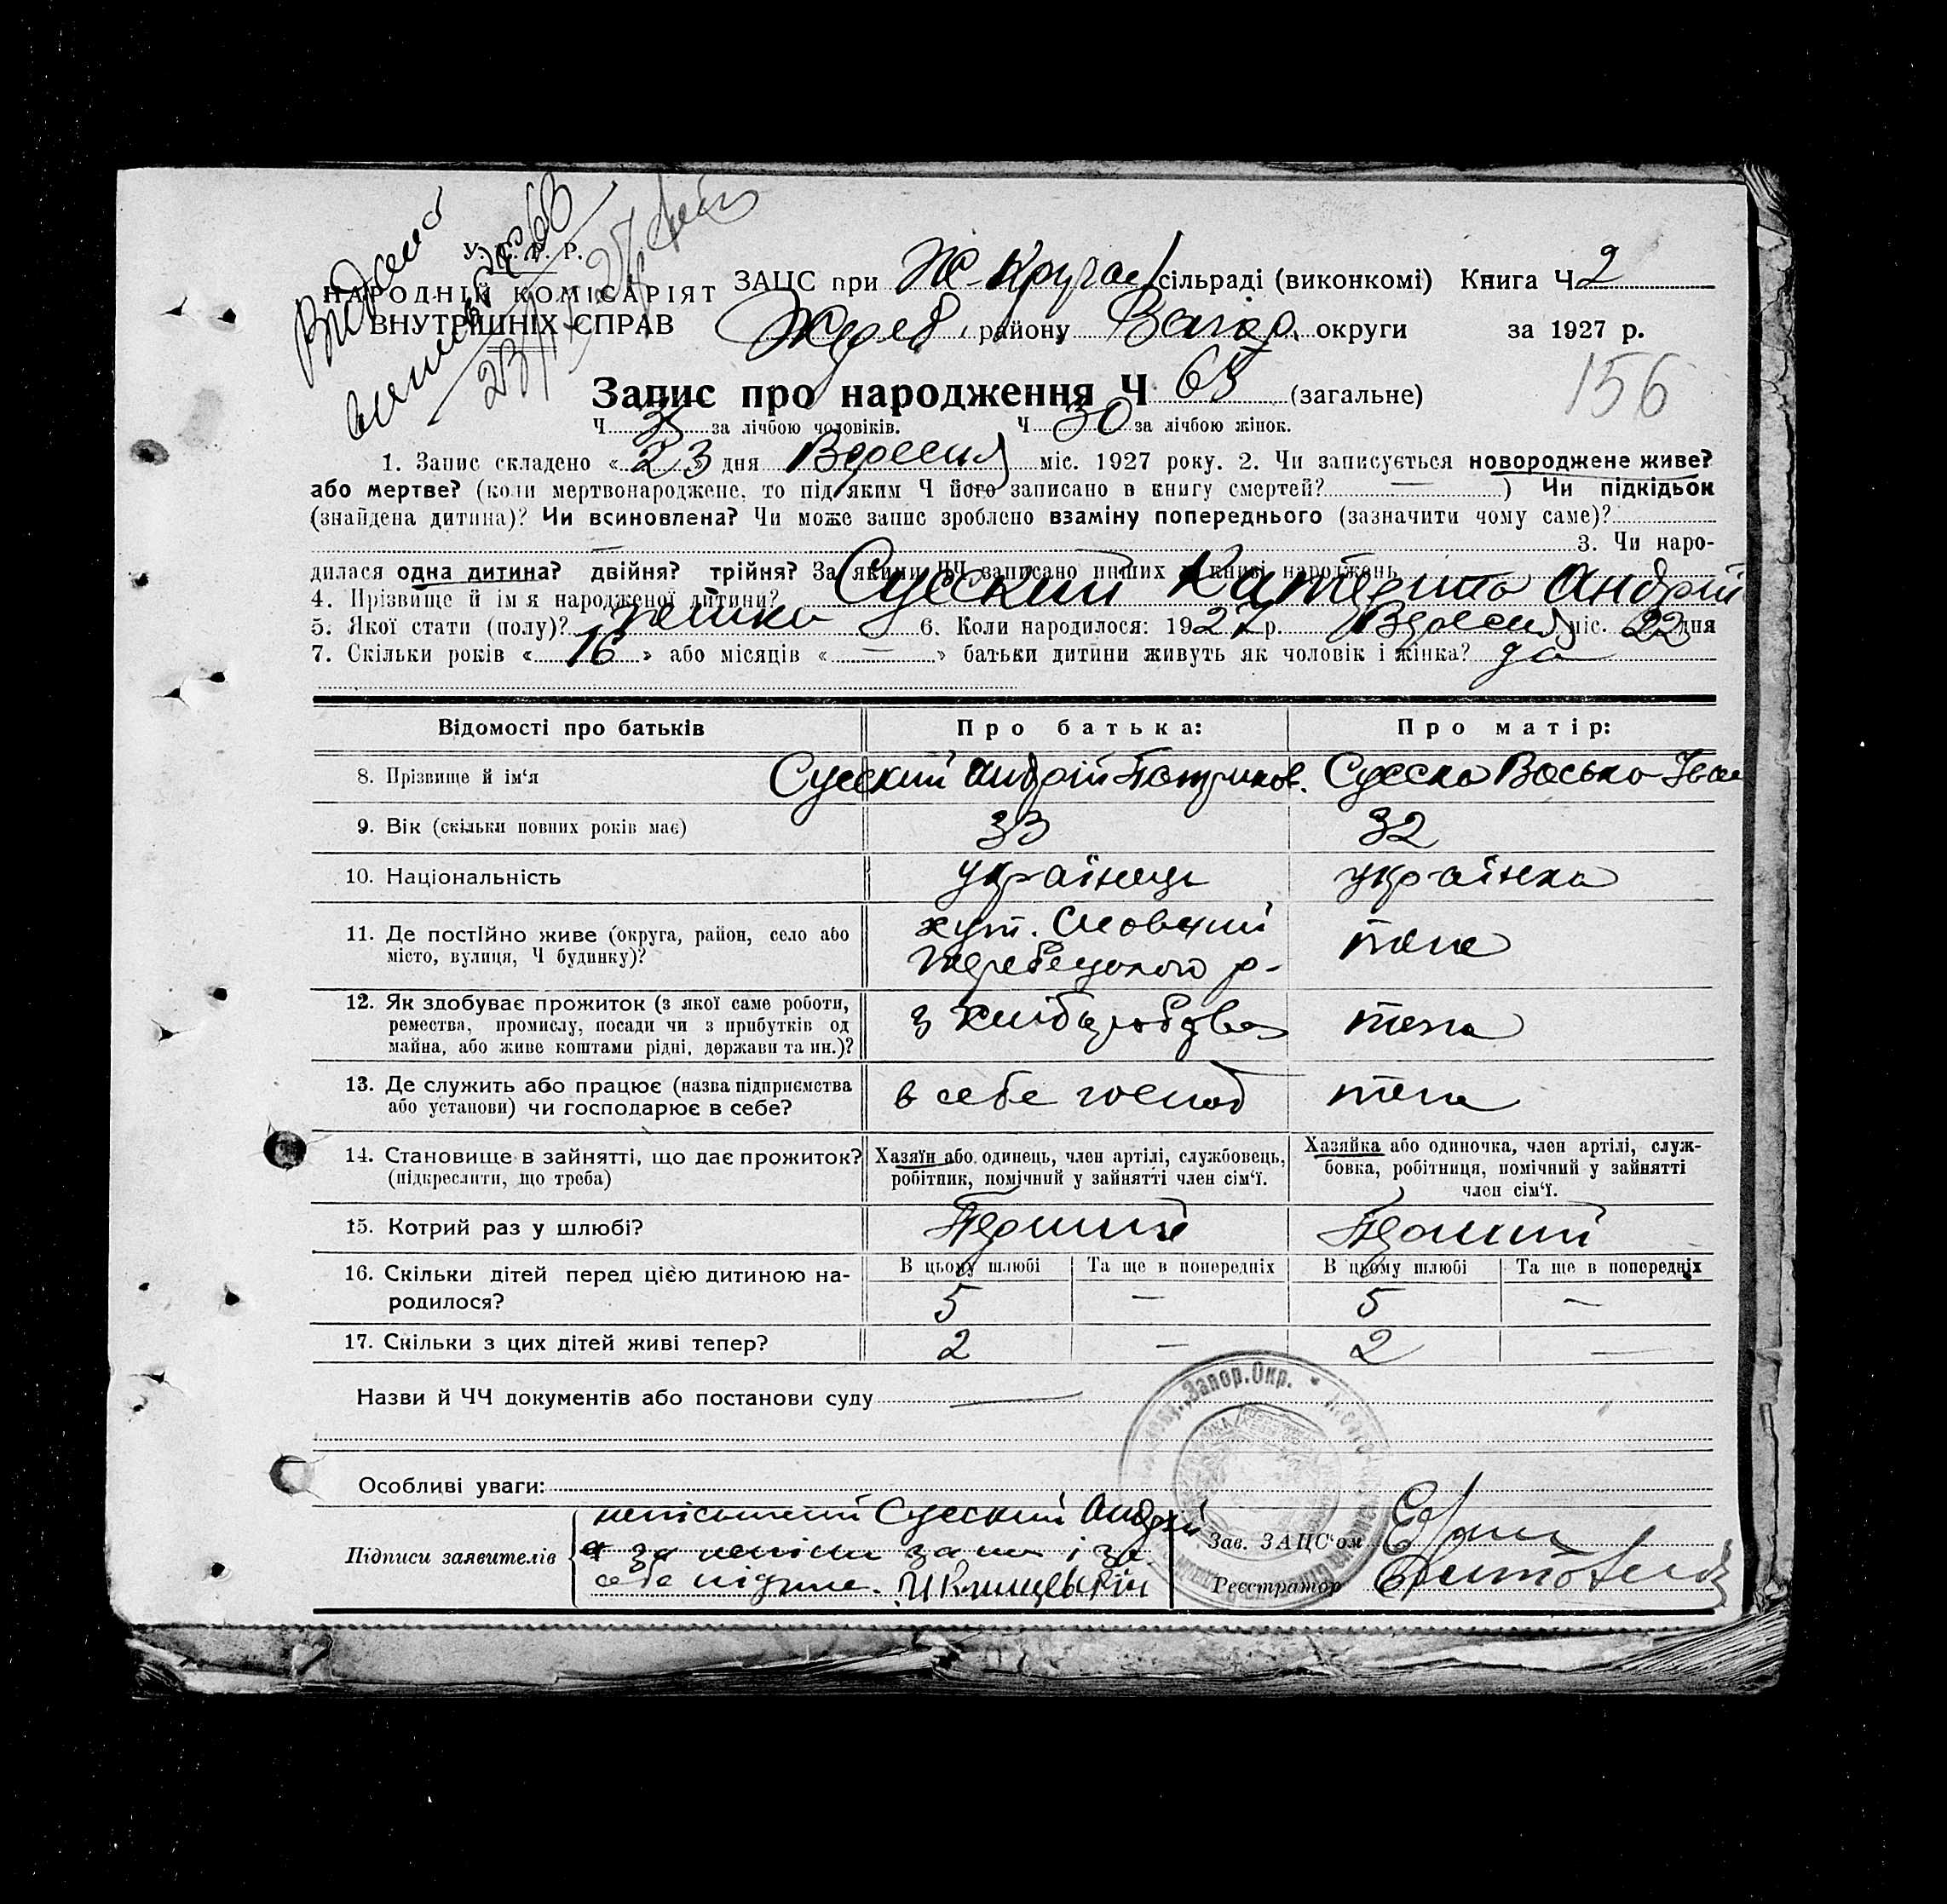 Видано
У. С. Р. Р.
НАРОДНІЙ КОМІСАРІЯТ
ВНУТРІШНІХ СПРАВ
ЗАЦС при сільраді (виконкомі) Книга Ч 2
Жереб. району Запор. округи за 1927 р.
156
Запис про народження Ч 65 (загальне)
Ч 35 за лічбою чоловіків. Ч 30 за лічбою жінок.
1. Запис складено « 23 » дня Вересня міс. 1927 року. 2. Чи записується новороджене живе?
або мертве? (коли мертвонароджене, то під яким Ч його записано в книгу смертей? — ) Чи підкідьок
(знайдена дитина)? Чи всиновлена? Чи може запис зроблено взаміну попереднього (зазначити чому саме)?
— 3. Чи наро-
дилася одна дитина? двійня? трійня? За якими ЧЧ записано инших в книзі народжень
4. Прізвище й ім'я народженої дитини? Суський Катерина Андрій
5. Якої стати (полу)? 6. Коли народилося: 1927 р. Вересня міс. 22 дня
7. Скільки років « 16 » або місяців « — » батьки дитини живуть як чоловік і жінка? да
Відомості про батьків Про батька: Про матір:
8. Прізвище й ім'я Суський Андрій Суська Васька Іван
9. Вік (скільки повних років має) 33 32
10. Національність українець українка
11. Де постійно живе (округа, район, село або місто, вулиця, Ч будинку)? хут. Жеребецького р- теж
12. Як здобуває прожиток (з якої саме роботи, ремества, промислу, посади чи з прибутків од майна, або живе коштами рідні, держави та ин.)? з хлібаробства теж
13. Де служить або працює (назва підприємства або установи) чи господарює в себе? в себе господ теж
14. Становище в зайнятті, що дає прожиток? (підкреслити, що треба) Хазяїн або одинець, член артілі, службовець, робітник, помічний у зайнятті член сім'ї. Хазяйка або одиночка, член артілі, служ-бовка, робітниця, помічний у зайнятті член сім'ї.
15. Котрий раз у шлюбі? Перший Перший
16. Скільки дітей перед цією дитиною на-родилося? В цьому шлюбі Та ще в попередніх В цьому шлюбі Та ще в попередніх
5 — 5 —
17. Скільки з цих дітей живі тепер? 2 — 2 —
Назви й ЧЧ документів або постанови суду —
Запор. Окр.
Особливі уваги:
Підписи заявителів неписьмений Суський Андрій
а за і за
себе підпис.
Зав. ЗАЦС'ом
Реєстратор